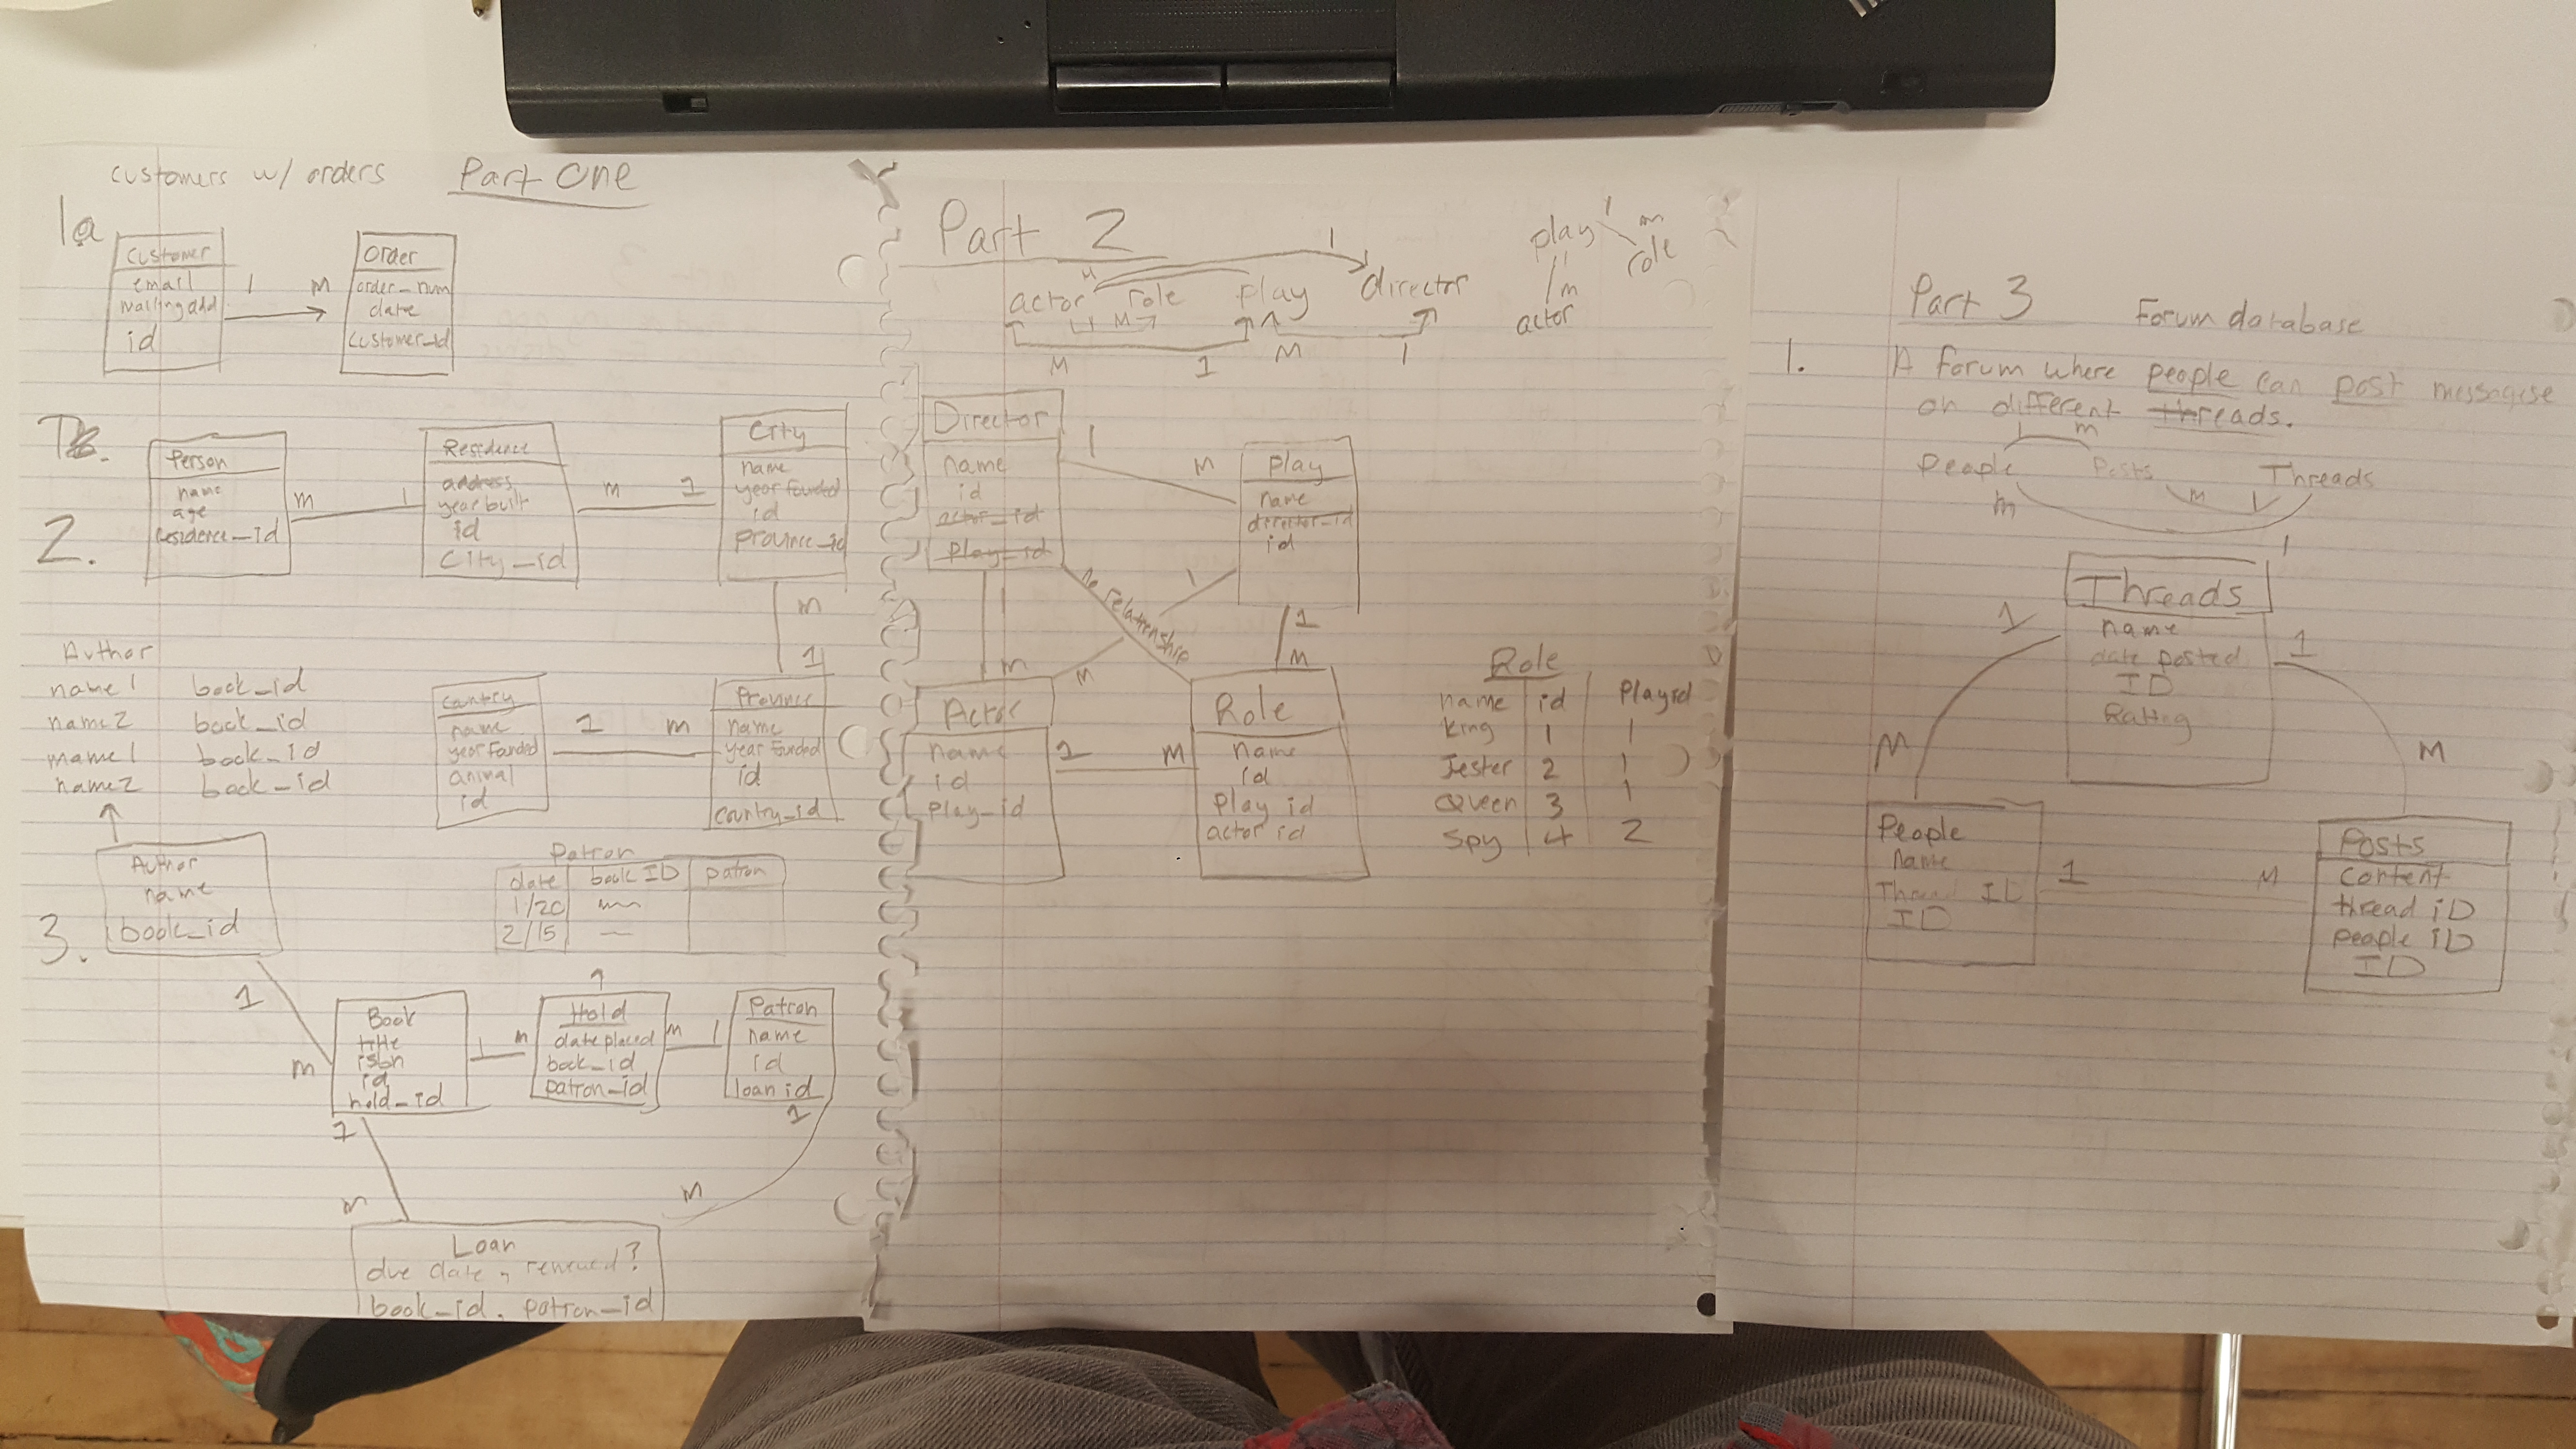 customers w/ orders Part One
1a
Customer
email
mailing add
id
1 M
Order
order-num
date
customer-id
2.
Person
name
age
residence-id
M 1
Residence
address
year built
id
City-id
M 1
City
name
year founded
id
province-id
M
1
Province
name
year founded
id
Country-id
M 1
Country
name
year founded
animal
id
Author
name 1 book-id
name 2 book-id
name 1 book-id
name 2 book-id
3.
Author
name
book-id
1
M
Book
title
isbn
id
hold-id
1 M
Hold
date placed
book-id
patron-id
M 1
Patron
name
id
loan id
Patron
date book ID patron
1/20
2/15
1 M
1 M
Loan
due date, renewed?
book-id, patron-id
Part 2
1
actor role play director
M 1 M 1
play
1 1
m m
role actor
Director
name
id
actor-id
play-id
1 M
Play
name
director-id
id
no relationship
1 M
1 M
1 M
Actor
name
id
Play-id
1 M
Role
name
id
Play id
actor id
Role
name id Played
King 1 1
Jester 2 1
Queen 3 1
Spy 4 2
Part 3 Forum database
1. A forum where people can post messages
on different threads.
1 m
People Posts Threads
m m 1
1
Threads
name
date posted
ID
Rating
1 M
1 M
People
name
Thread ID
ID
1 M
Posts
Content
thread iD
people iD
ID